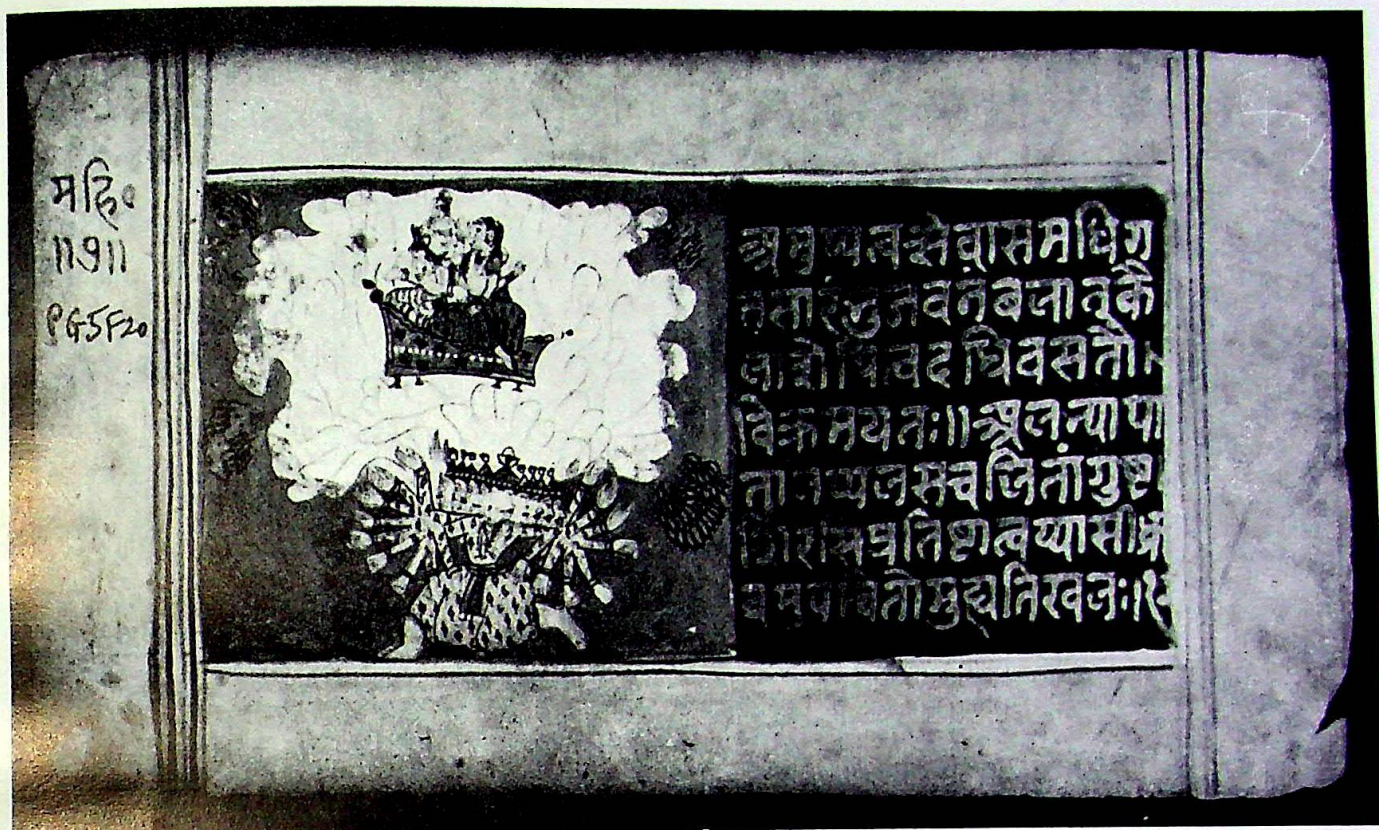 महि॰
॥७॥
PG5F20
अमुष्य त्वत्सेवासमधिग
तसारंभुजवनंबलात्कै
लासेपित्वदधिवसतौ
विक्रमयतः॥ अलभ्यापा
तालेप्यलसचलितांगुष्ट
शिरसिप्रतिष्टात्वय्यासीद्ध्रु
वमुपचितोमुह्यतिखलः॥